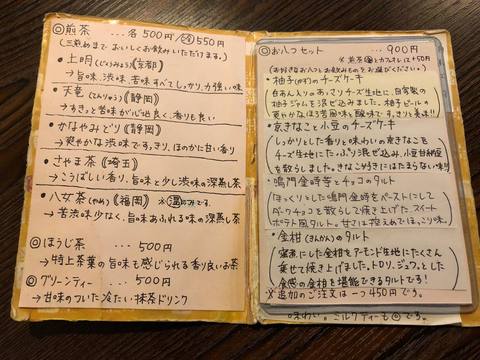 ◎煎茶 ... 各 500円/冷550円
(三煎めまで おいしくお飲みいただけます。)
・上明(じょうみょう)《京都》
→旨味、渋味、苦味すべてしっかり、力強い味
・天竜(てんりゅう)《静岡》
→すきっと苦味が心地良く、香りも良い
・かなやみどり《静岡》
→爽やかな渋味ですっきり、ほのかに甘い香り
・さやま茶《埼玉》
→こうばしい香り、旨味と少し渋味の深蒸し茶
・八女茶(やめ)《福岡》 ※温のみです。
→苦渋味少なく、旨味あふれる味の深蒸し茶
◎ほうじ茶 ... 500円
→特上茶葉の旨味も感じられる香り良いお茶
◎グリーンティー ... 500円
→甘味のついた冷たい抹茶ドリンク
◎お八つセット ... 900円
※煎茶冷とカフェオレは+50円
(お好きなお八つとお飲みものをお選びください。)
・柚子(ゆず)のチーズケーキ
白あん入りのあっさりチーズ生地に、自家製の
柚子ジャムを混ぜ込みました。柚子ピールの
爽やかなほろ苦風味と酸味で、すっきり美味!!
・京きなこと小豆のチーズケーキ
しっとりした香りと味わいの京きなこを
チーズ生地にたっぷり混ぜ込み、小豆甘納豆
を散らしました。きなこ好きにはたまらない味!!
・鳴門金時芋とチョコのタルト
ほっくりとした鳴門金時をペーストにして
ダークチョコを散らして焼き上げた、スイート
ポテト風タルト。甘さは控えめでほっこり味。
・金柑(きんかん)のタルト
蜜煮にした金柑をアーモンド生地にたくさん
乗せて焼き上げました。トロリ、ジュワッとした
食感の金柑を堪能できるタルトです!
※追加のご注文は一つ450円です。
味わい。ミルクティーも◎です。